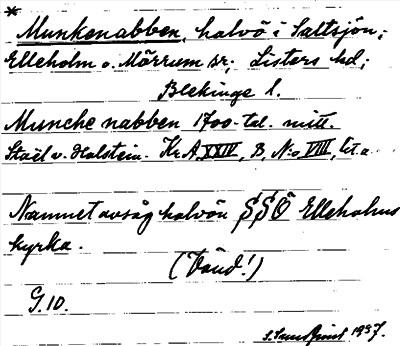 *
Munkenabben, halvö i Saltsjön;
Elleholm o. Mörrum sr; Listers hd;
Blekinge l.
Munche nabben 1700-tal. mitt.
Staël v. Holstein. Kr A XXIV, B, N:o VIII, lit. a
Namnet avsåg halvön S S Ö Elleholms
kyrka.
(Vänd!)
G. 10.
1937.